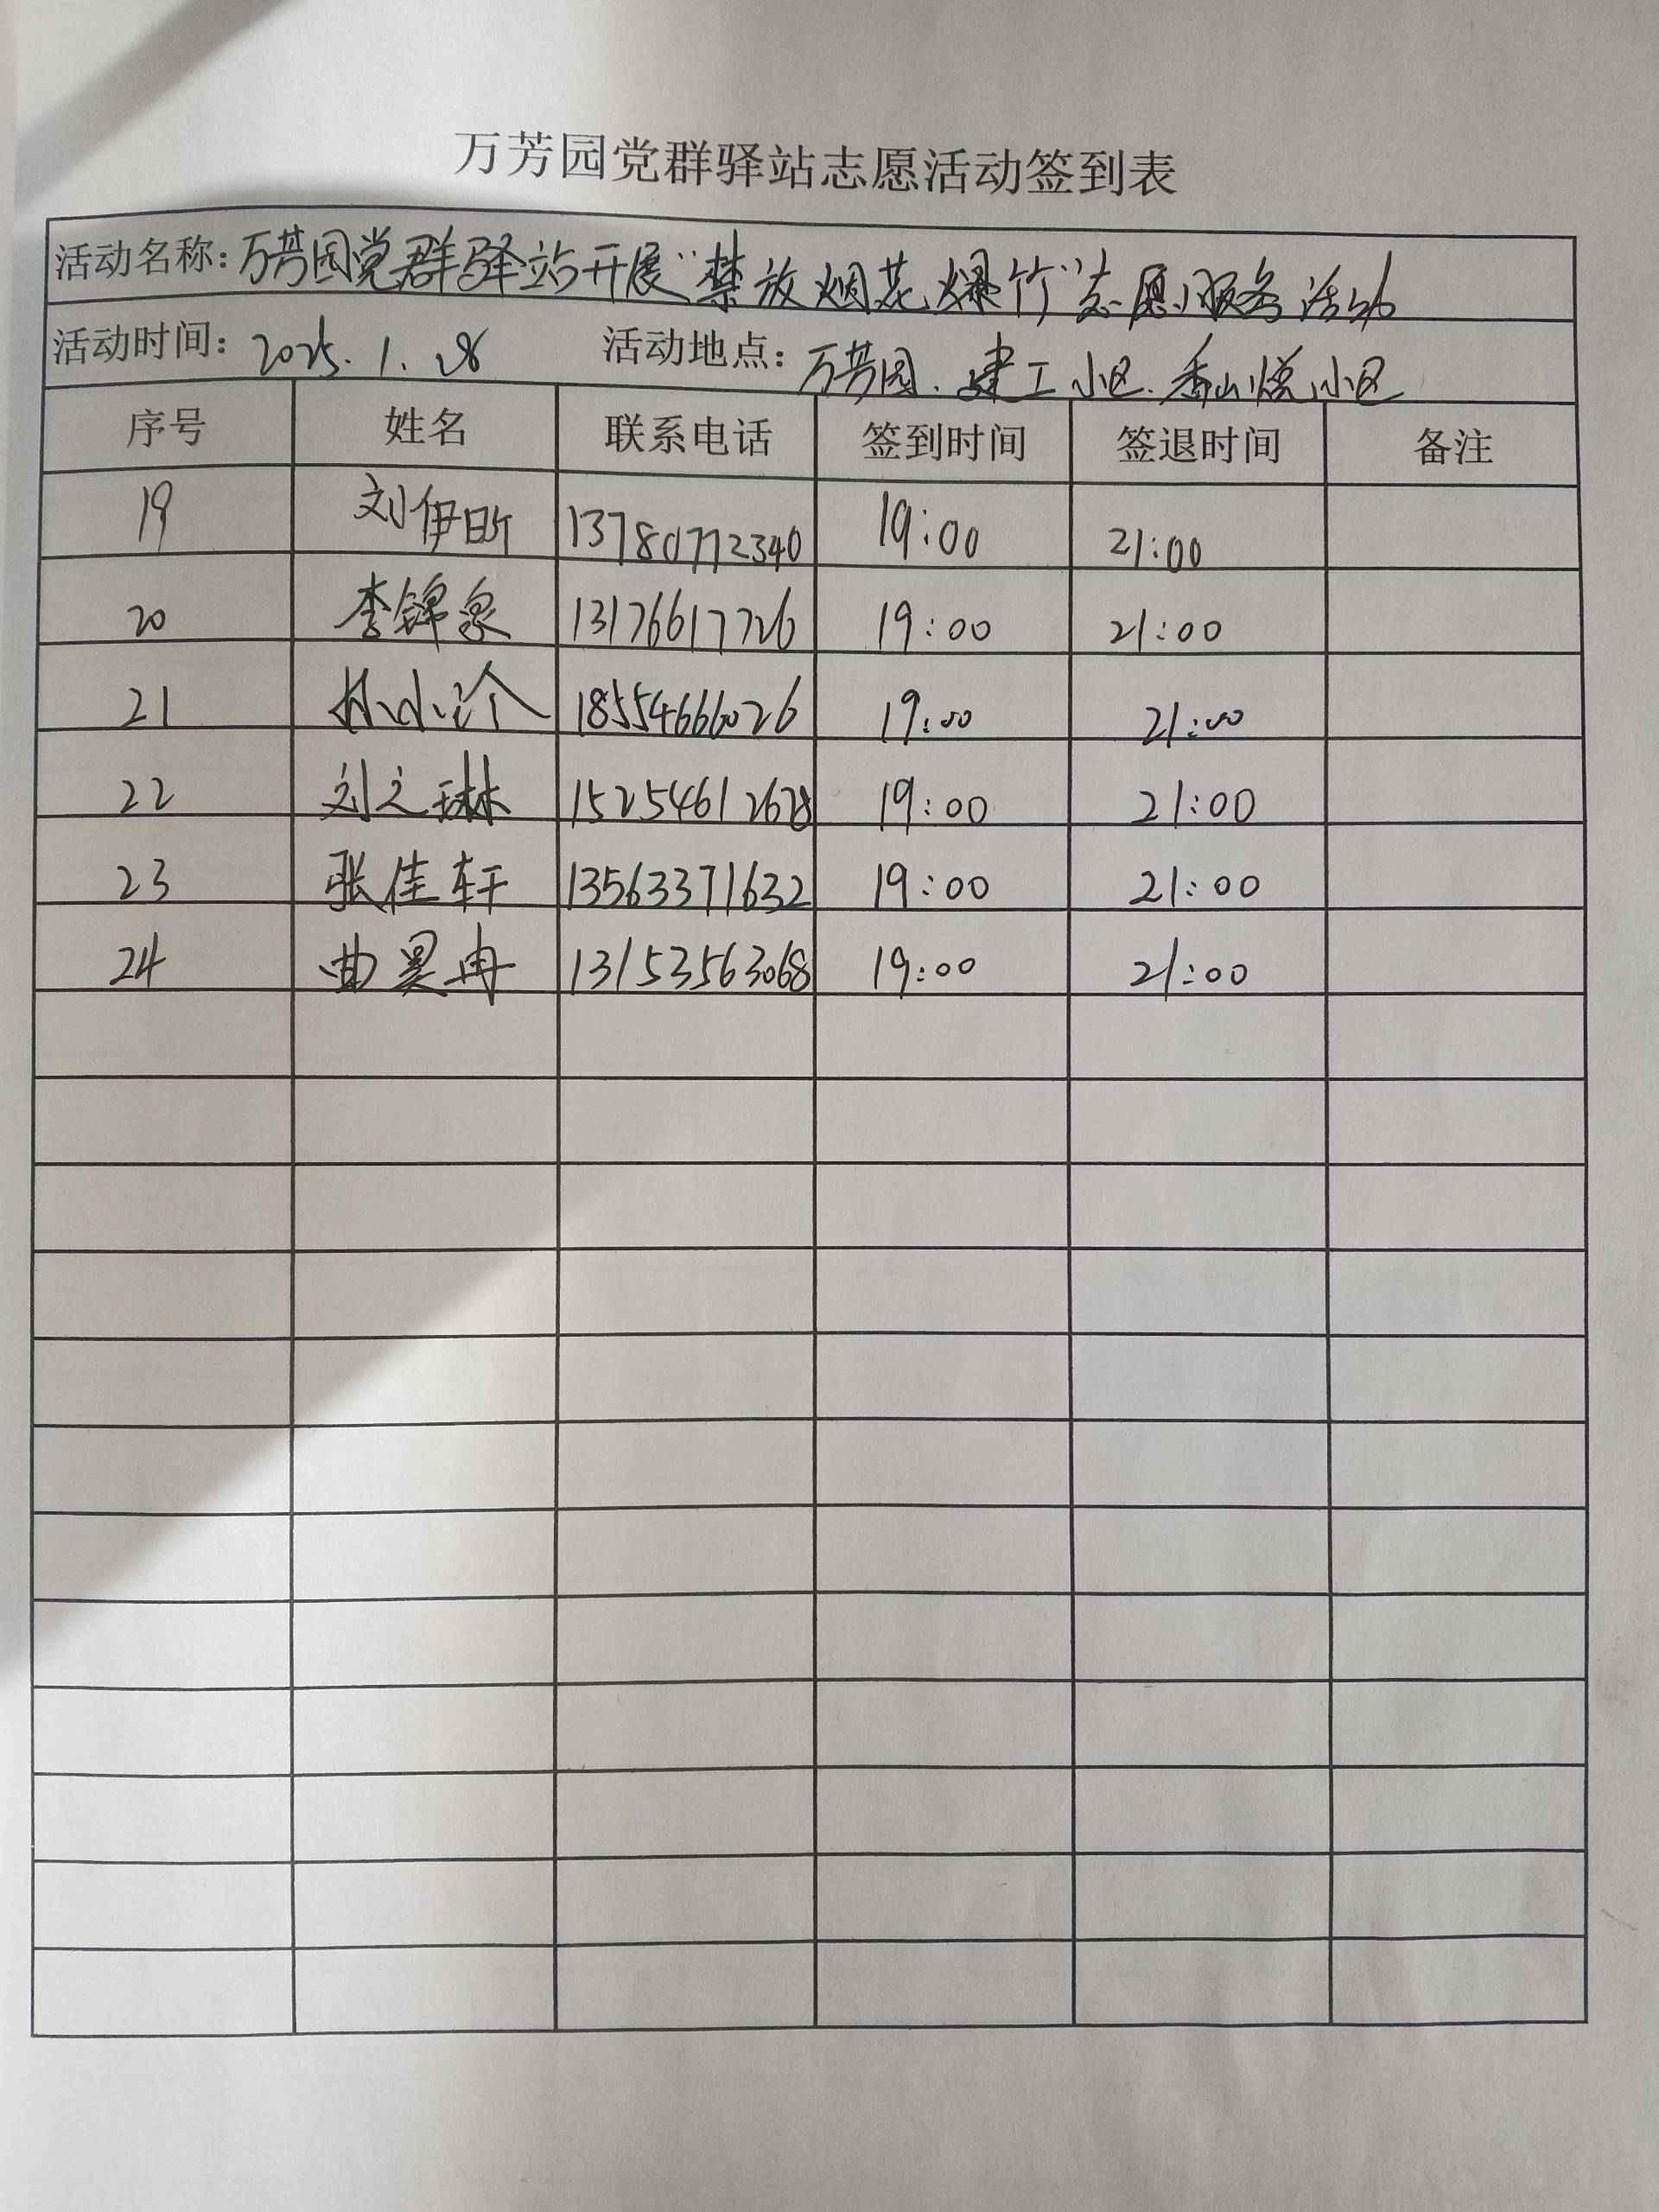 万芳园党群驿站志愿活动签到表
活动名称：万芳园党群驿站开展“禁放烟花爆竹”志愿服务活动
活动时间：2025.1.28 活动地点：万芳园、建工小区、香山悦小区
序号 姓名 联系电话 签到时间 签退时间 备注
19 刘伊昕 13780772340 19:00 21:00
20 李锦泉 13176617726 19:00 21:00
21 18554666026 19:00 21:00
22 刘文琳 15254612678 19:00 21:00
23 张佳轩 13563371632 19:00 21:00
24 曲昊冉 13153563068 19:00 21:00